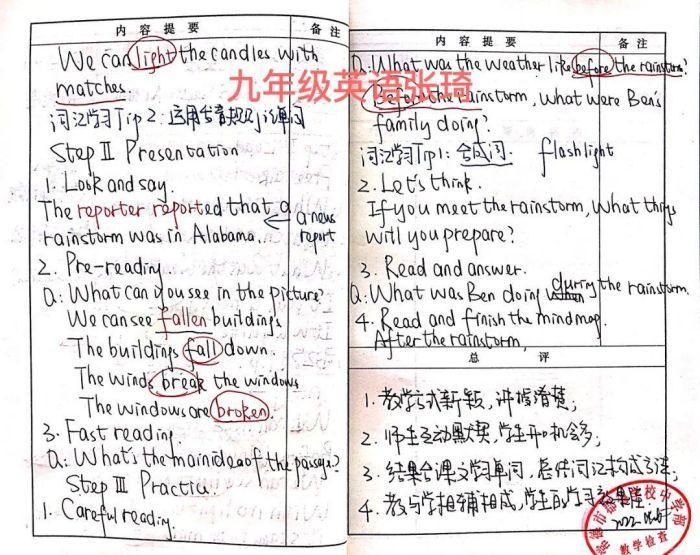 内容提要 备注
We can light the candles with
matches.
词汇学习Tip 2: 运用合音规则记单词
Step II Presentation
1. Look and say.
The reporter reported that a
rainstorm was in Alabama. ← a news
report
2. Pre-reading
Q: What can you see in the picture?
We can see fallen buildings
The buildings fall down.
The winds break the windows
The windows are broken.
3. Fast reading.
Q: What's the main idea of the passage?
Step III Practice.
1. Careful reading.
九年级英语张琦
内容提要 备注
Q: What was the weather like before the rainstorm?
Before the rainstorm, what were Ben's
family doing?
词汇学习Tip1: 合成词 flashlight
2. Let's think.
If you meet the rainstorm, what things
will you prepare?
3. Read and answer.
Q: What was Ben doing during the rainstorm.
4. Read and finish the mindmap.
After the rainstorm,
总评
1. 教学方式新颖, 讲授清楚;
2. 师生互动默契, 学生开口机会多;
3. 结合课文学习单词, 总结词汇构成方法;
4. 教与学相辅相成, 学生的学习效果佳.
学校中学部
教学检查